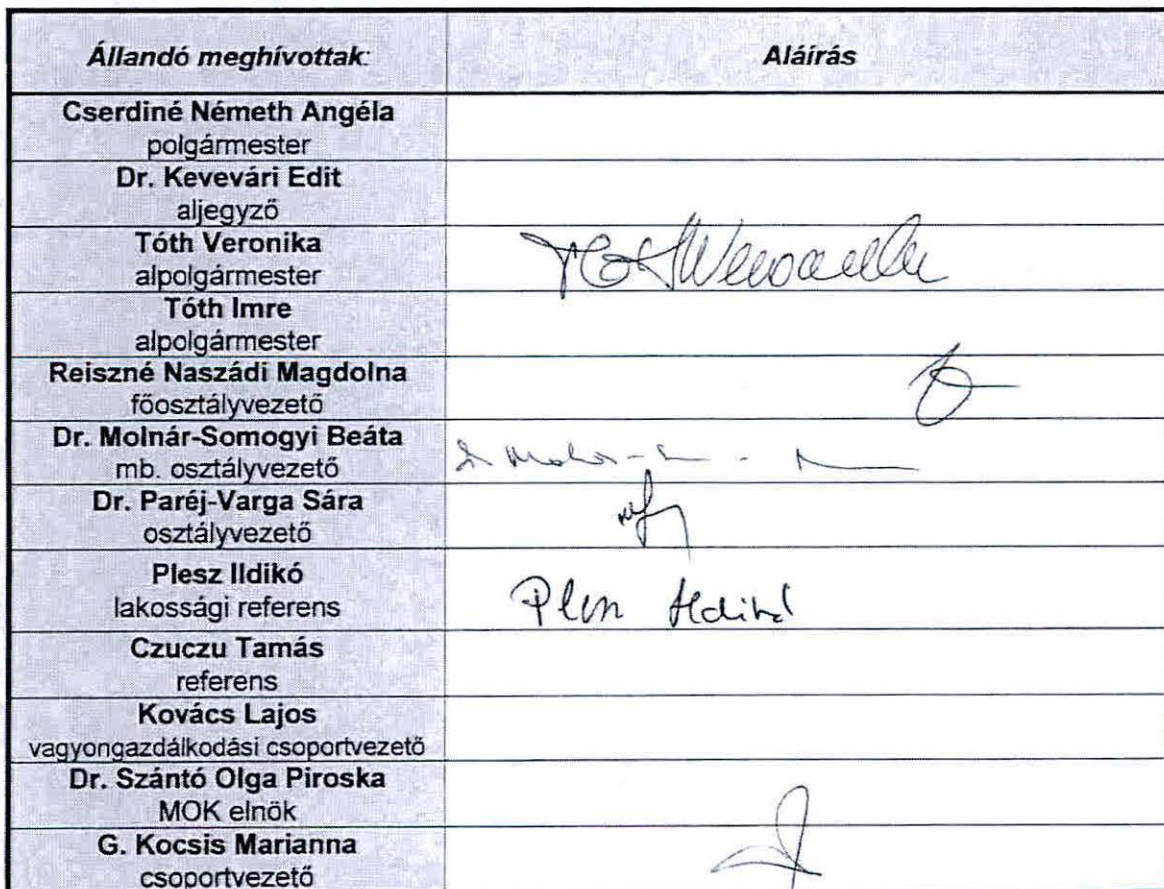 Állandó meghívottak:
Aláírás
Cserdiné Németh Angéla
polgármester
Dr. Kevevári Edit
aljegyző
Tóth Veronika
alpolgármester
Tóth Imre
alpolgármester
Reiszné Naszádi Magdolna
főosztályvezető
Dr. Molnár-Somogyi Beáta
mb. osztályvezető
Dr. Paréj-Varga Sára
osztályvezető
Plesz Ildikó
lakossági referens
Czuczu Tamás
referens
Kovács Lajos
vagyongazdálkodási csoportvezető
Dr. Szántó Olga Piroska
MOK elnök
G. Kocsis Marianna
csoportvezető